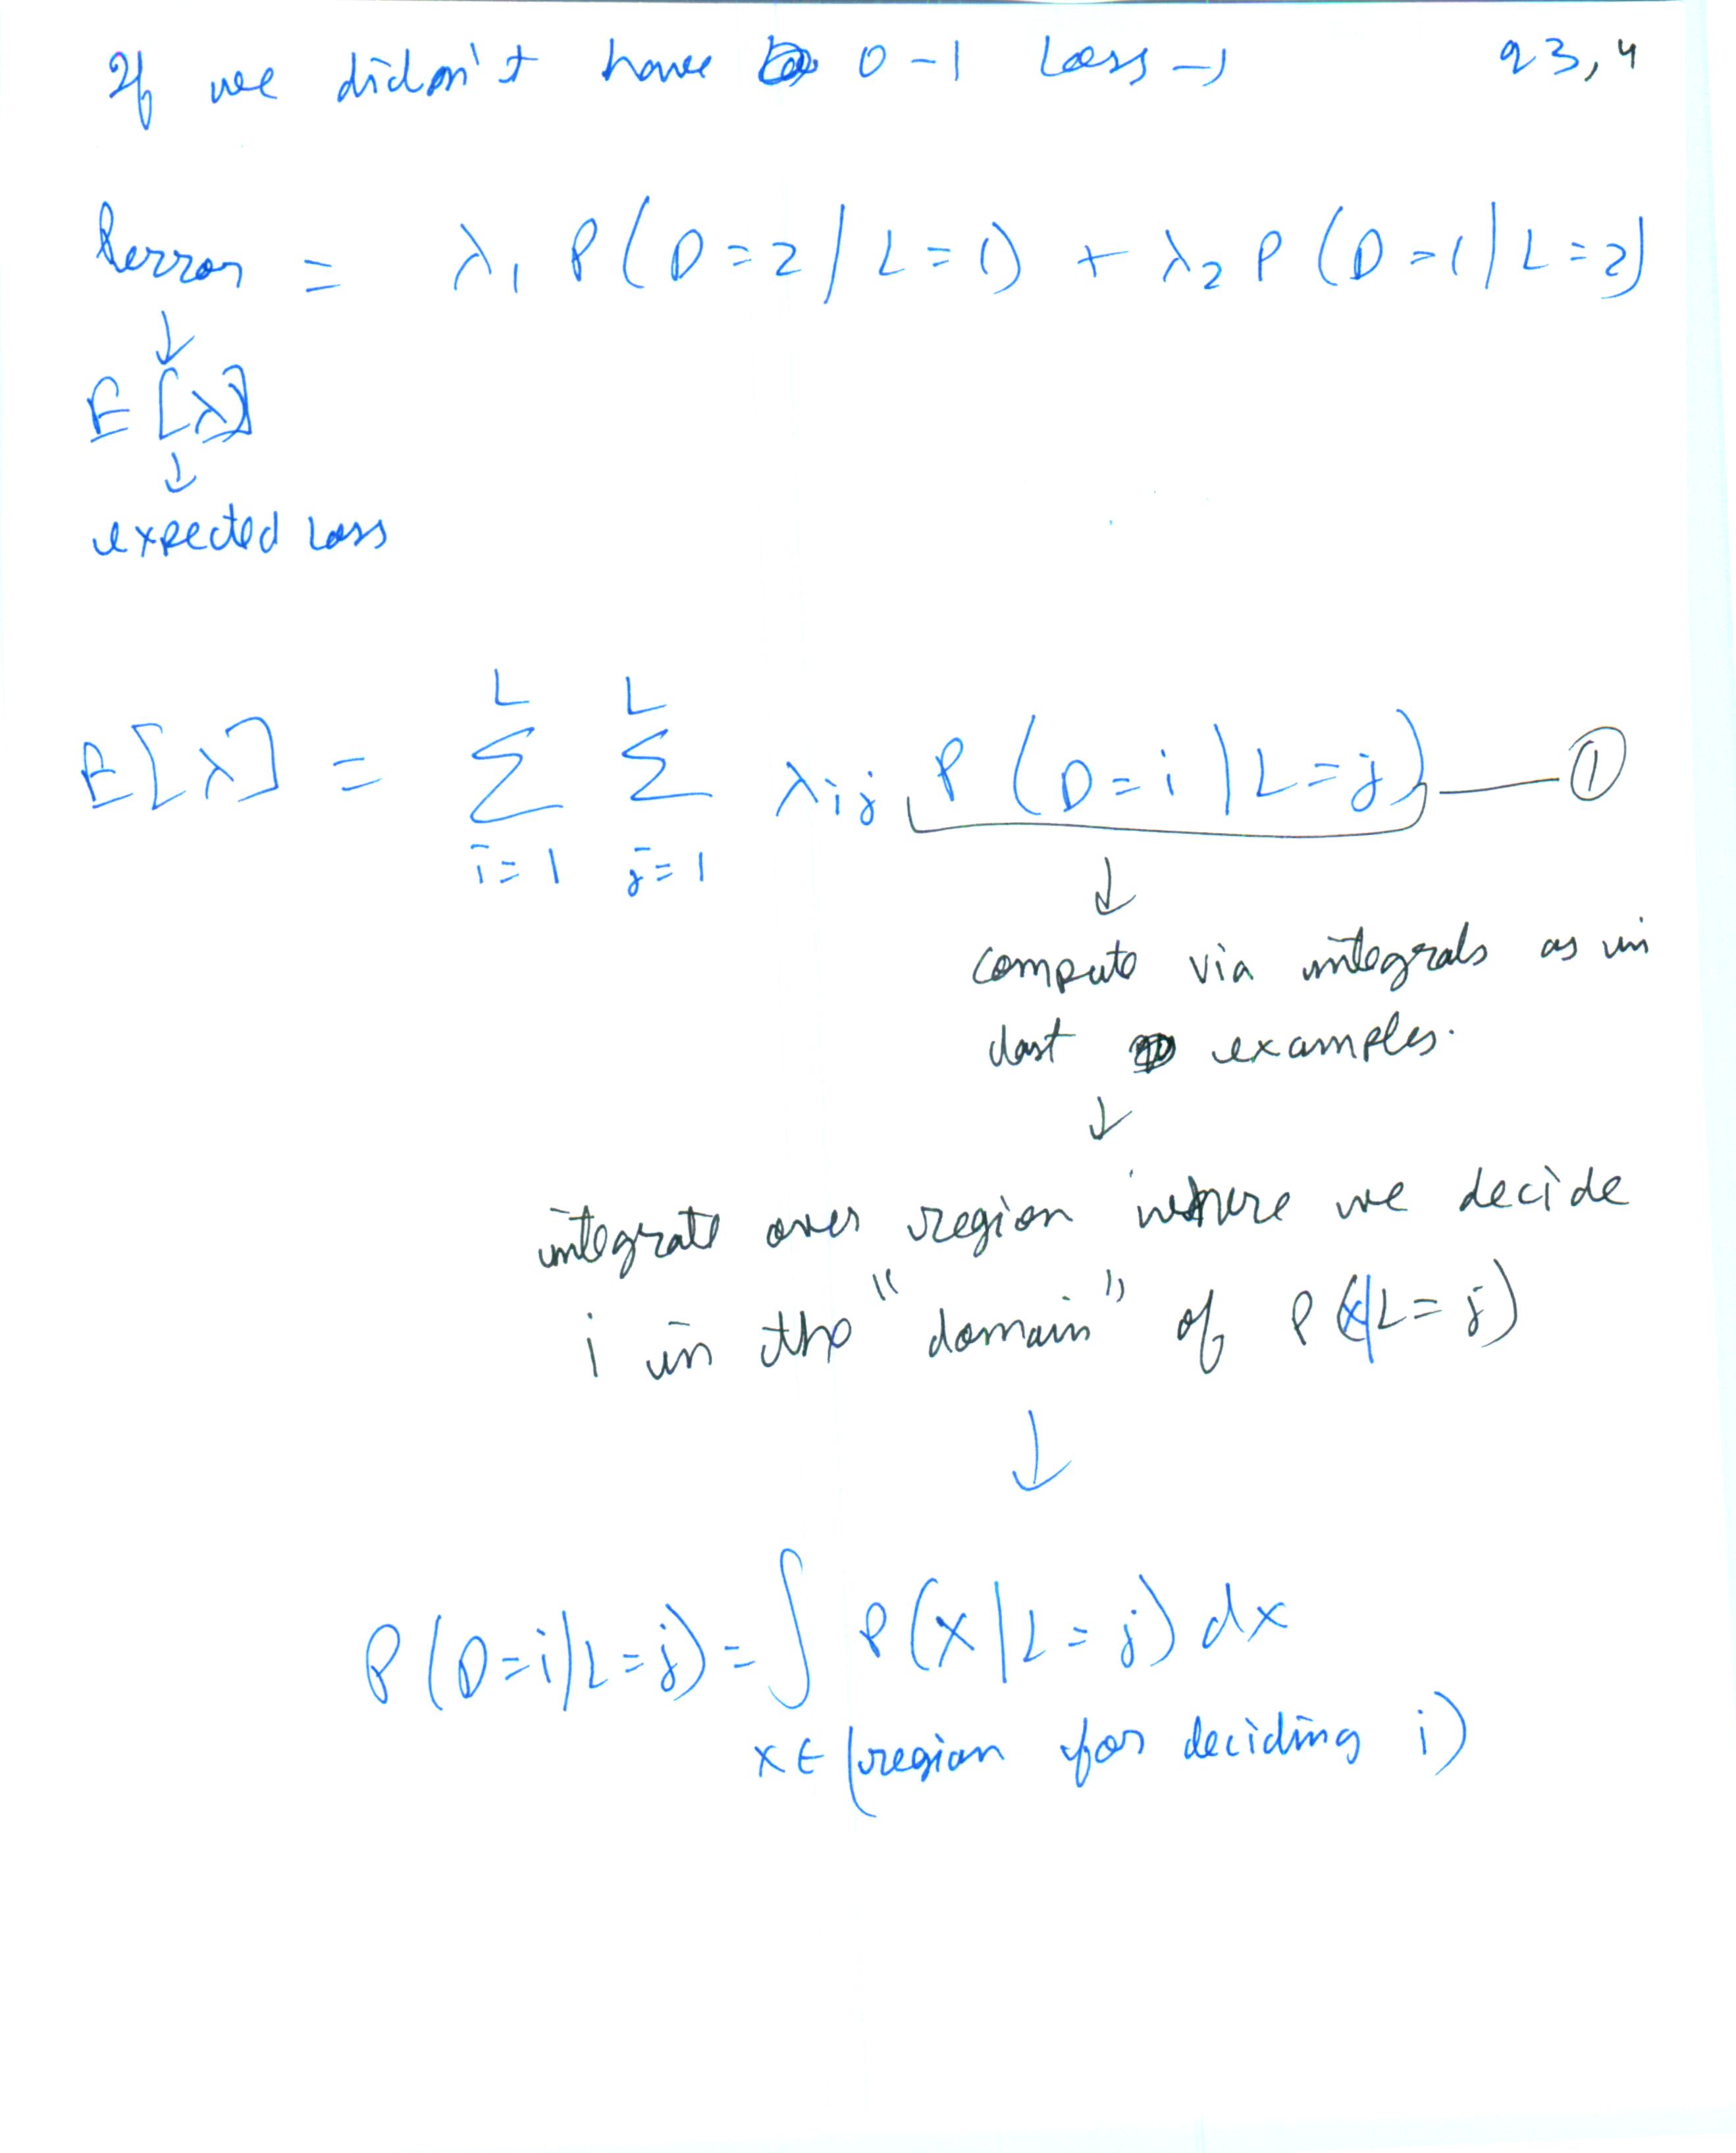 If we didn't have 0-1 Loss → q3,4
Perror = λ₁ P(D=2/L=1) + λ₂ P(D=1|L=2)
↓
E[λ]
↓
expected loss
L L
E[λ] = Σ Σ λij P(D=i|L=j) — ①
i=1 j=1
↓
compute via integrals as in
last examples.
↓
integrate over region where we decide
i in the "domain" of P(x|L=j)
↓
P(D=i|L=j) = ∫ P(x|L=j) dx
x ∈ (region for deciding i)